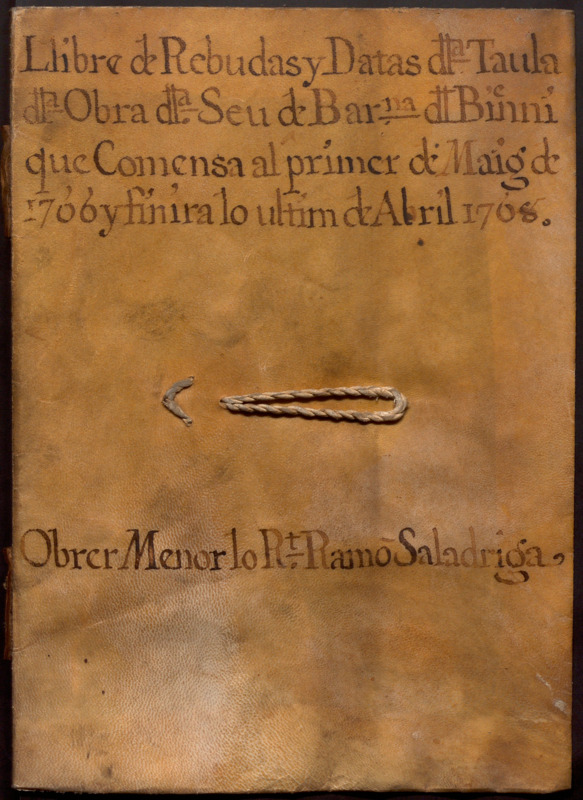 Llibre de Rebudas y Datas dla Taula
dla Obra dla Seu de Barna dl Bienni
que Comensa al primer de Maig de
1766 y finira lo ultim de Abril 1768.
Obrer Menor lo Rt. Ramō Saladriga,